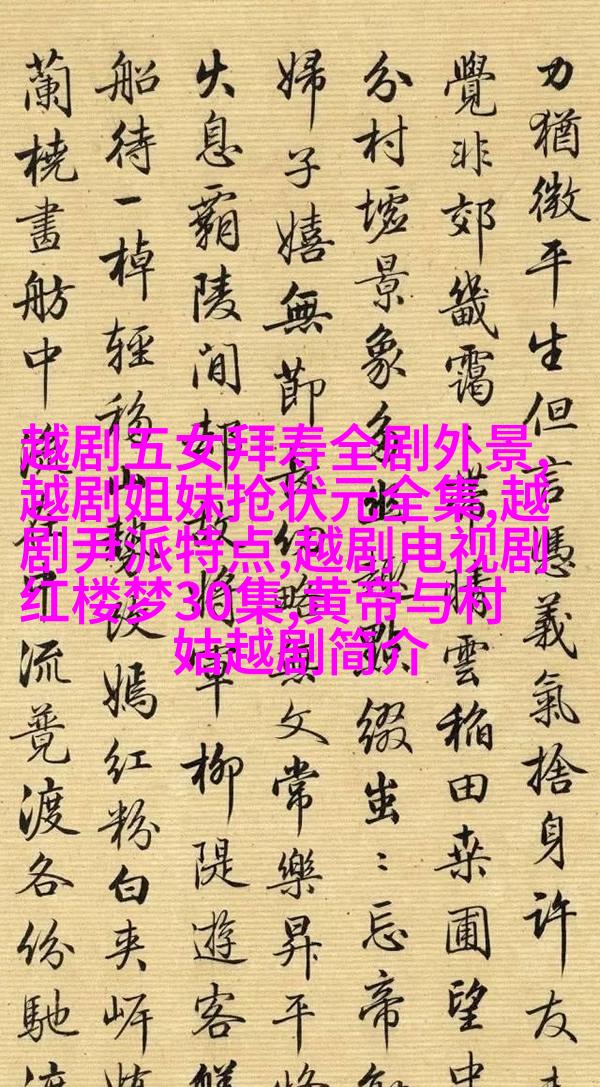 力猶微平生但言憑義氣捨身許友
覺非郊畿靄帶晴雲稻田桒圃望中
分村墟景象多幽點綴出〻忘帝
婦子嬉無節文常樂昇平
火息霸陵间却故將軍柳隄遊客
船待一棹輕移山嫣紅粉白夹岸
蘭橈畫舫中流覽渡各份馳
越剧五女拜寿全剧外景,
越剧姐妹抢状元全集,越
剧尹派特点,越剧电视剧
红楼梦30集,黄帝与村
姑越剧简介